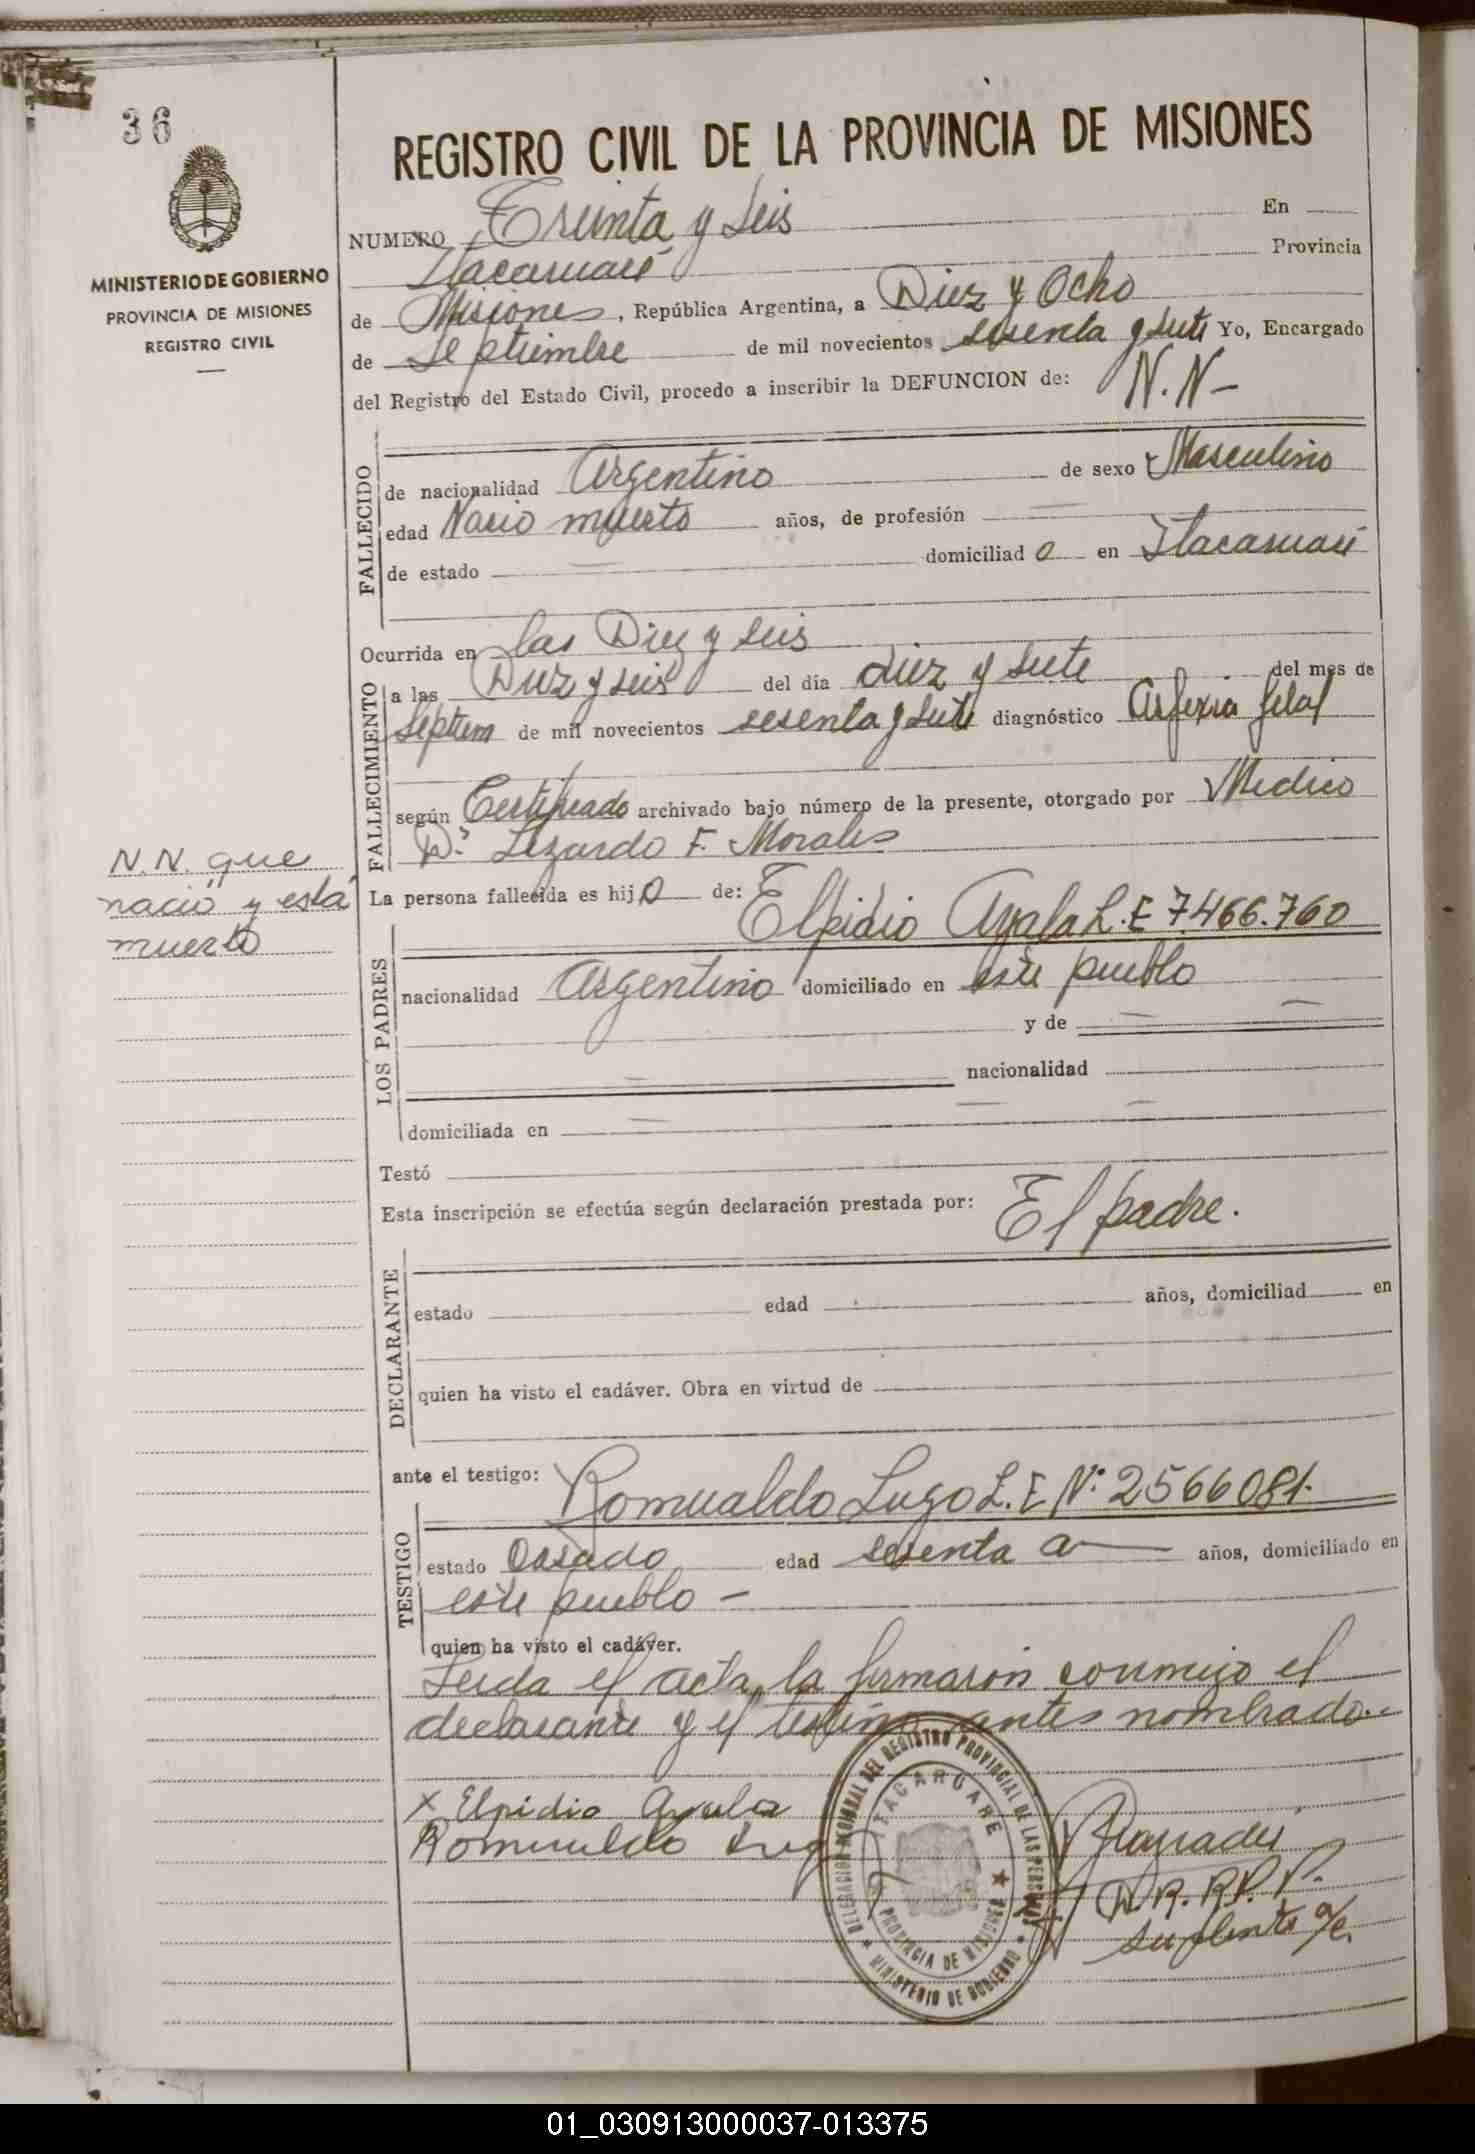 36
MINISTERIO DE GOBIERNO
PROVINCIA DE MISIONES
REGISTRO CIVIL
REGISTRO CIVIL DE LA PROVINCIA DE MISIONES
NUMERO Treinta y Seis En
Itacaruaré Provincia
de Misiones, República Argentina, a Diez y Ocho
de Septiembre de mil novecientos sesenta y siete Yo, Encargado
del Registro del Estado Civil, procedo a inscribir la DEFUNCION de: N.N-
FALLECIDO
de nacionalidad Argentino de sexo Masculino
edad Nacio muerto años, de profesión
de estado domiciliado en Itacaruaré
Ocurrida en las Diez y seis
FALLECIMIENTO
a las Diez y seis del día diez y siete del mes de
Septiem de mil novecientos sesenta y siete diagnóstico Asfixia fetal
según Certificado archivado bajo número de la presente, otorgado por Medico
Dr. Lizardo F. Morales
N.N. que
nació y está
muerto
La persona fallecida es hijo de: Elpidio Ayala L.E 7.466.760
LOS PADRES
nacionalidad Argentino domiciliado en este pueblo
y de
nacionalidad
domiciliada en
Testó
Esta inscripción se efectúa según declaración prestada por: El padre.
DECLARANTE
estado edad años, domiciliad en
quien ha visto el cadáver. Obra en virtud de
ante el testigo: Romualdo Lugo L.E Nº 2566081.
TESTIGO
estado Casado edad sesenta a años, domiciliado en
este pueblo -
quien ha visto el cadáver.
Leida el acta, la firmaron conmigo el
declarante y el testigo antes nombrado.-
x Elpidio Ayala
Romualdo Lugo
DELEGACION SECCIONAL DEL REGISTRO PROVINCIAL DE LAS PERSONAS
ITACARUARE
PROVINCIA DE MISIONES
MINISTERIO DE GOBIERNO
D.R.P.P.
Suplente a/c.
01_030913000037-013375